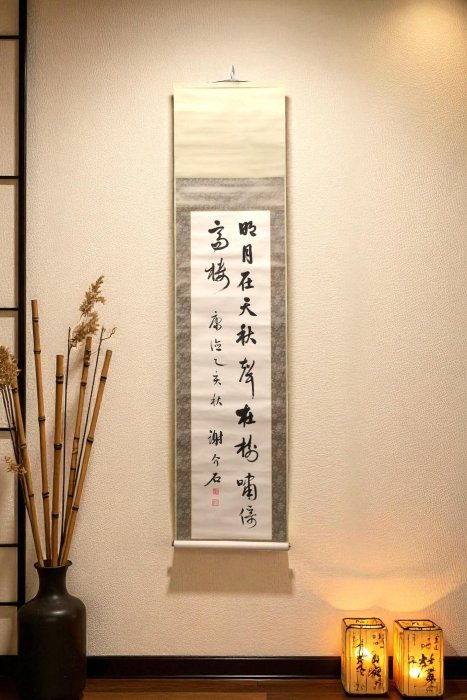 明月在天秋聲在樹嘯倚
高樓 康德乙亥秋 謝介石